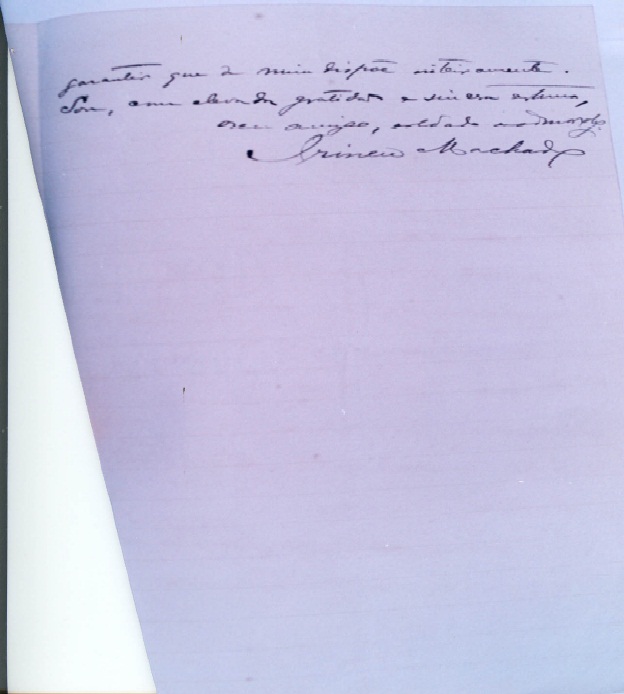 garantir que de mim dispõe inteiramente.
Sou, com elevada gratidão e sincera estima,
seu amigo, soldado e admor. obgo.
Irineu Machado